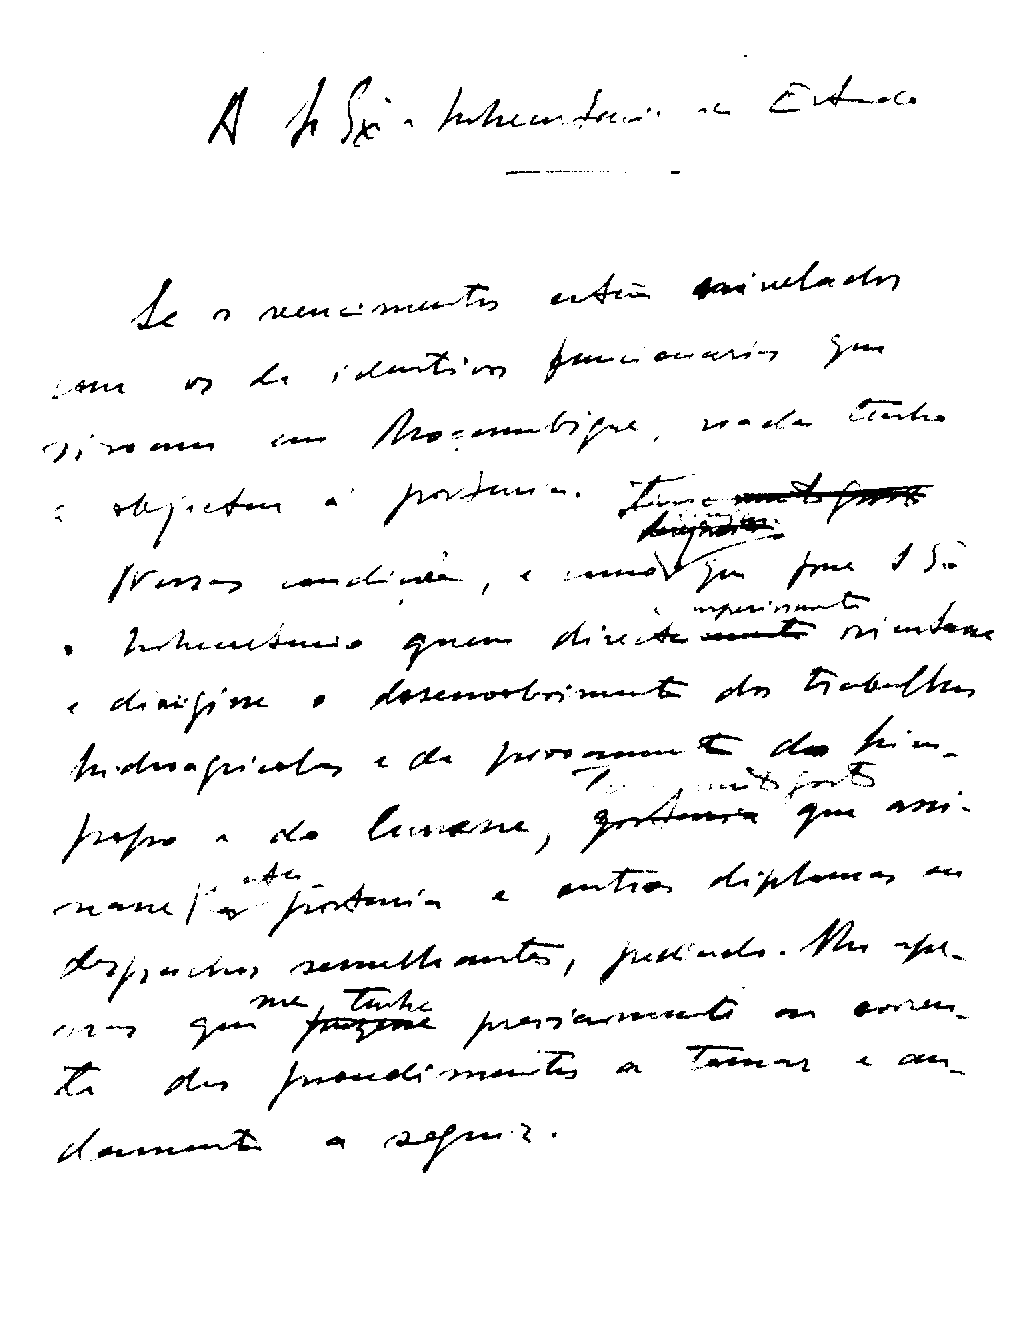 A S. Exª o Subsecretario de Estado
Se os vencimentos estão nivelados
com os de identicos funcionarios que
sirvam em Moçambique, nada tenho
a objectar á portaria.
Nessas condições, e como que fosse S. Exª
o Subsecretario quem directa e superiormente orientasse
e dirigisse o desenvolvimento dos trabalhos
hidroagricolas e de povoamento do Lim-
popo e do Cunene, Teria muito gosto que assi-
nasse esta portaria e outros diplomas ou
despachos semelhantes, pedindo-lhe ape-
nas que me tenha previamente ao corren-
te dos procedimentos a tomar e an-
damento a seguir.